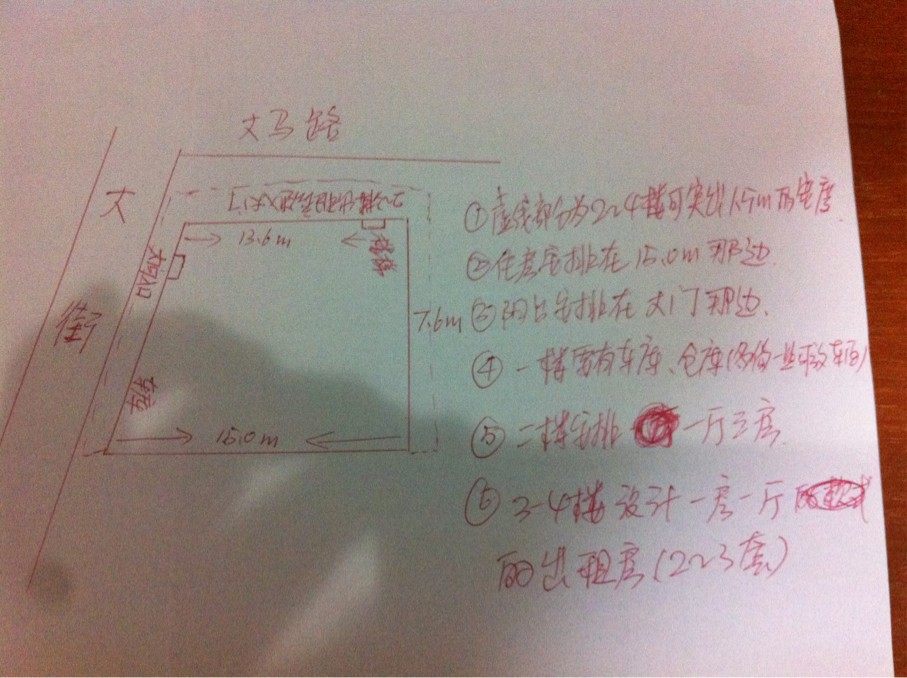 大马路
大
街
13.6m
楼梯
7.6m
15.0m
①虚线部分为2~4楼可突出1.5m的宽度.
②住房安排在15.0m那边.
③阳台安排在大门那边.
④一楼要有车库、仓库
⑤二楼安排 一厅三房.
⑥3-4楼设计一房一厅
的出租房(2~3套)